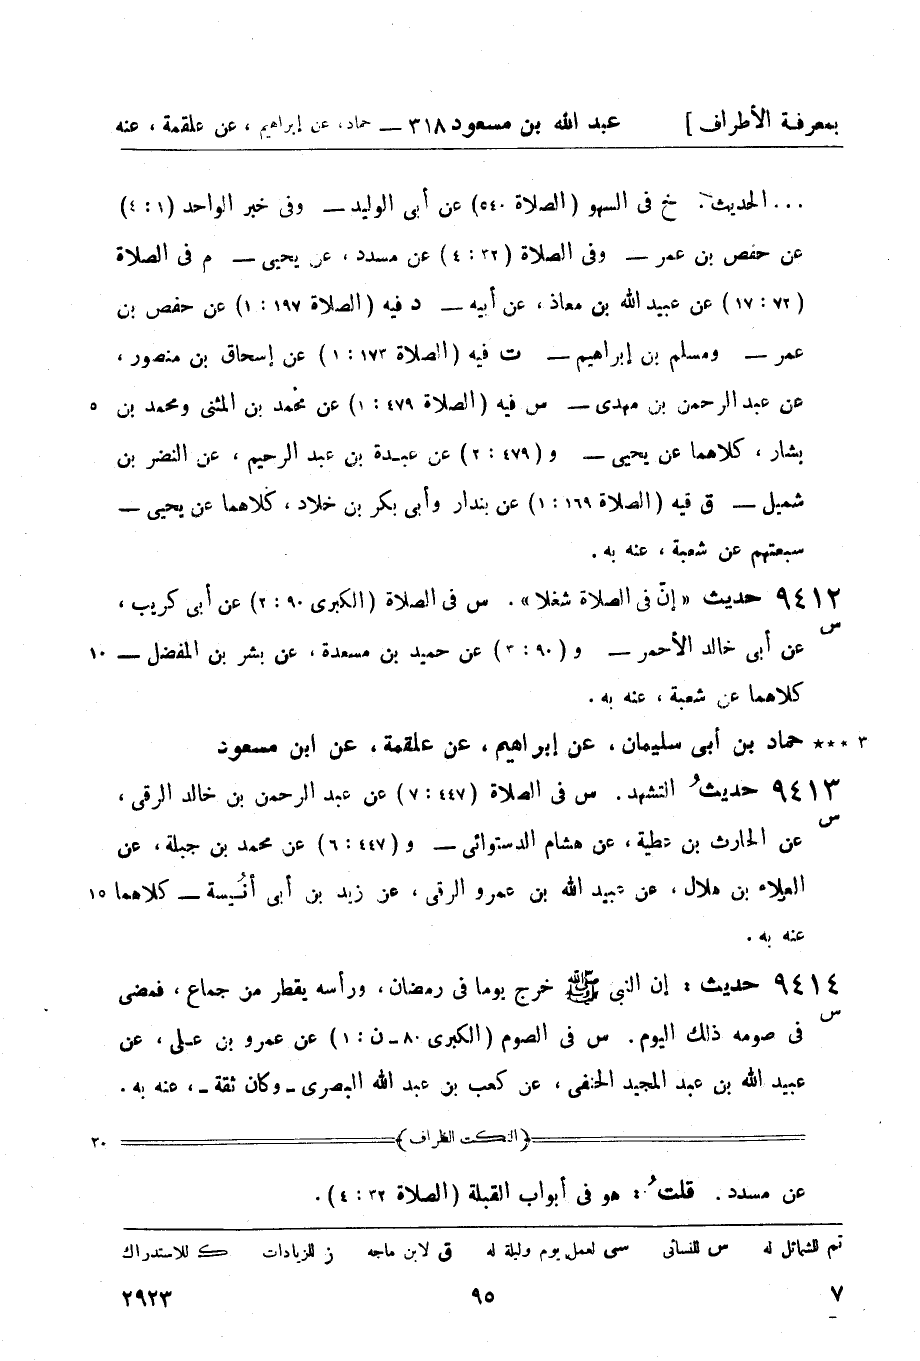 بمعرفة الأطراف ] عبد الله بن مسعود ٣١٨ — حماد، عن إبراهيم ، عن علقمة ، عنه
... الحديث . خ فى السهو (الصلاة ٥٤٠) عن أبى الوليد — وفى خبر الواحد (١ : ٤)
عن حفص بن عمر — وفى الصلاة (٣٢ : ٤) عن مسدد ، عن يحيى — م فى الصلاة
(٧٢ : ١٧) عن عبيد الله بن معاذ ، عن أبيه — د فيه (الصلاة ١٩٧ : ١) عن حفص بن
عمر — ومسلم بن إبراهيم — ت فيه (الصلاة ١٧٣ : ١) عن إسحاق بن منصور ،
عن عبد الرحمن بن مهدى — س فيه (الصلاة ٤٧٩ : ١) عن محمد بن المثنى ومحمد بن ٥
بشار ، كلاهما عن يحيى — و (٤٧٩ : ٢) عن عبدة بن عبد الرحيم ، عن النضر بن
شميل — ق فيه (الصلاة ١٦٩ : ١) عن بندار وأبى بكر بن خلاد ، كلاهما عن يحيى —
سبعتهم عن شعبة ، عنه به .
٩٤١٢ حديث « إنّ فى الصلاة شغلا » . س فى الصلاة (الكبرى ٩٠ : ٢) عن أبى كريب ،
س
عن أبى خالد الأحمر — و (٩٠ : ٣) عن حميد بن مسعدة ، عن بشر بن المفضل — ١٠
كلاهما عن شعبة ، عنه به .
٣ *** حماد بن أبى سليمان ، عن إبراهيم ، عن علقمة ، عن ابن مسعود
٩٤١٣ حديثُ التشهد . س فى الصلاة (٤٤٧ : ٧) عن عبد الرحمن بن خالد الرقى ،
س
عن الحارث بن عطية ، عن هشام الدستوائى — و (٤٤٧ : ٦) عن محمد بن جبلة ، عن
العلاء بن هلال ، عن عبيد الله بن عمرو الرقى ، عن زيد بن أبى أنُيسة — كلاهما ١٥
عنه به .
٩٤١٤ حديث : إن النبى ﷺ خرج يوما فى رمضان ، ورأسه يقطر من جماع ، فمضى
س
فى صومه ذلك اليوم . س فى الصوم (الكبرى ٨٠ ـ ن : ١) عن عمرو بن على ، عن
عبيد الله بن عبد المجيد الحنفى ، عن كعب بن عبد الله البصرى ـ وكان ثقة ـ ، عنه به .
(النكت الظراف) ٢٠
عن مسدد . قلتُ : هو فى أبواب القبلة (الصلاة ٣٢ : ٤) .
تم للشمائل له س للنسائى سى لعمل يوم وليلة له ق لابن ماجه ز للزيادات ك للاستدراك
٧ ٩٥ ٢٩٢٣